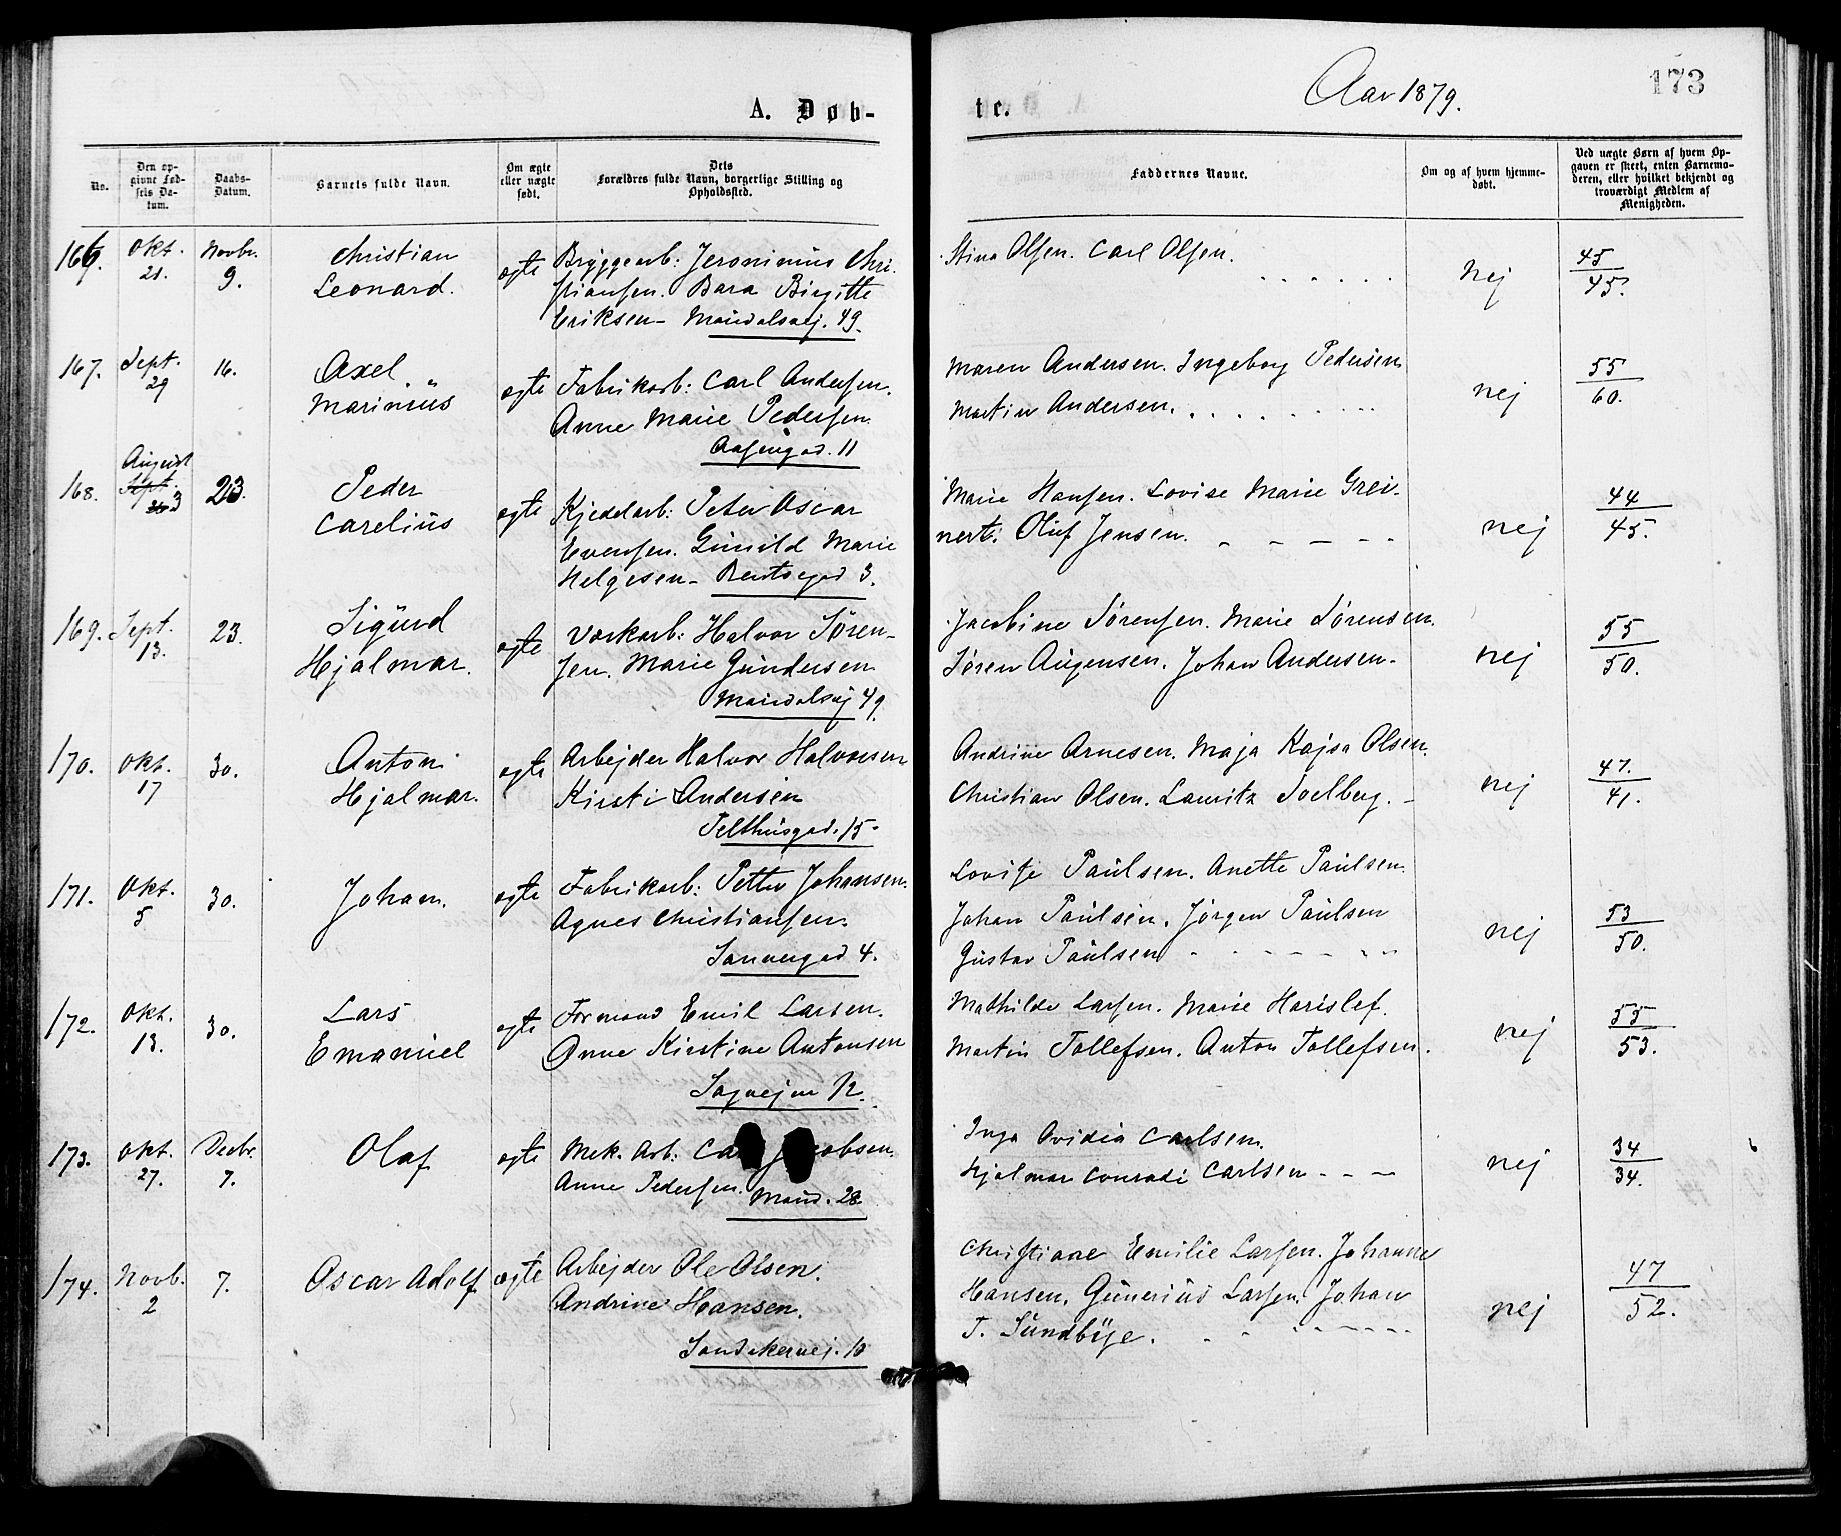 Aar 1879.
173
A. Døb-
te.
No.
Den op-
givne Fød-
sels Da-
tum.
Daabs-
Datum.
Barnets fulde Navn.
Om ægte
eller uægte
født.
Dets
Forældres fulde Navn, borgerlige Stilling og
Opholdssted.
Faddernes Navne.
Om og af hvem hjemme-
døbt.
Ved uægte Børn af hvem Op-
gaven er skeet, enten Barnemo-
deren, eller hvilket bekjendt og
troværdigt Medlem af
Menigheden.
166. Okt. 21. Novbr. 9. Christian Leonard. ægte
Bryggearb: Jeronimus Chri-
stiansen. Bara Birgitte
Eriksen - Maridalsvej. 49.
Stina Olsen. Carl Olsen.
nej
45
45.
167. Sept. 29 16. Axel Marinius ægte
Fabrikarb: Carl Andersen.
Anne Marie Pedersen
Aasengad. 11
Maren Andersen. Ingeborg Pedersen
Martin Andersen.
nej
55
60.
168. August Sept. 3 23. Peder Carelius ægte
Kjedelarb: Peter Oscar
Evensen. Gunild Marie
Helgesen - Bentsegad 3.
Marie Hansen. Lovise Marie Grei-
nert. Oluf Jensen.
nej
44
45.
169. Sept. 13. 23. Sigurd Hjalmar. ægte
Værkarb: Halvor Søren-
sen. Marie Gundersen
Maridalsvej 49.
Jacobine Sørensen. Marie Sørensen.
Søren Augensen. Johan Andersen.
nej
55
50.
170. Okt. 17 30. Anton Hjalmar. ægte
Arbejder Halvor Halvorsen
Kirsti Andersen
Telthusgad. 15.
Andrine Arnesen. Maja Kajsa Olsen.
Christian Olsen. Lauritz Soelberg.
nej
47.
41.
171. Okt. 5 30. Johan. ægte
Fabrikarb: Petter Johansen.
Agnes Christiansen.
Sannergad 4.
Lovise Paulsen. Anette Paulsen.
Johan Paulsen. Jørgen Paulsen
Gustav Paulsen
nej
53
50.
172. Okt. 13. 30. Lars Emanuel ægte
Formand Emil Larsen.
Anne Kirstine Antonsen
Sagvejen 12.
Mathilde Larsen. Marie Harislef.
Martin Tollefsen. Anton Tollefsen.
nej
55
53.
173. Okt. 27. Decbr. 7. Olaf ægte
Mek. Arb: Ca obsen.
Anne Pedersen. Marid. 28
Inga Ovidia Carlsen.
Hjalmar Conradi Carlsen
nej
34
34.
174. Novb. 2 7. Oscar Adolf ægte
Arbejder Ole Olsen.
Andrine Hansen.
Sandakervej. 10
Christiane Emilie Larsen. Johanne
Hansen. Gunerius Larsen. Johan
T. Sundbye.
nej
47
52.